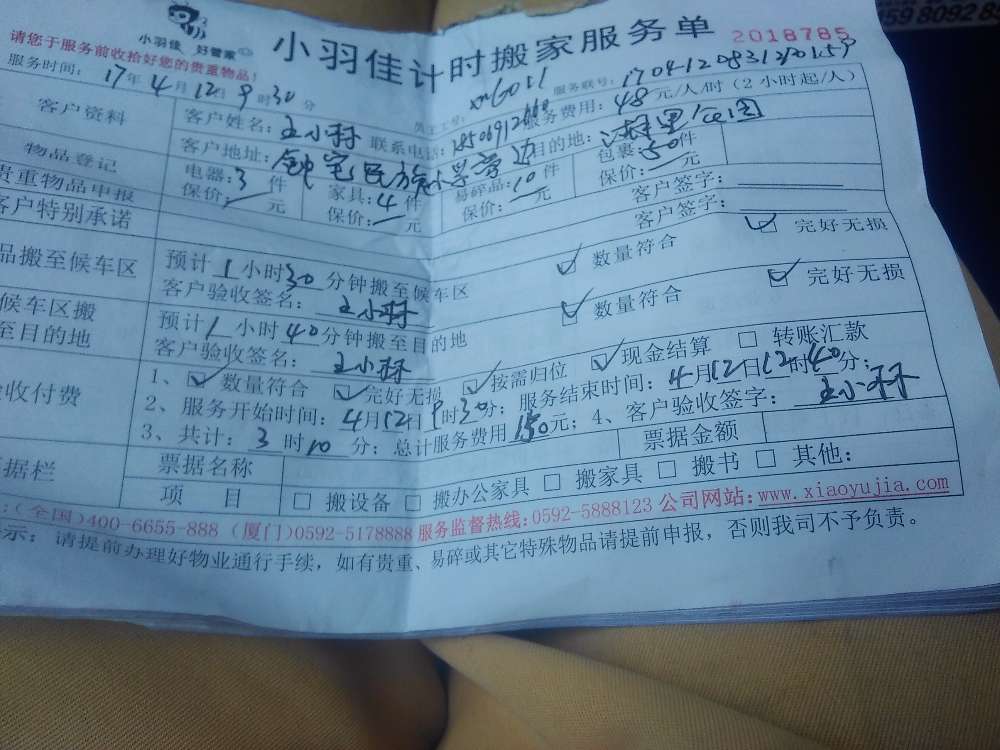 小羽佳 好管家
小羽佳计时搬家服务单
2018785
请您于服务前收拾好您的贵重物品!
服务时间: 17年4月12日9时30分 员工工号: xm6011 服务联号: 17041208312101559
客户资料 客户姓名: 王小林 联系电话: 服务费用: 48元/人/时(2小时起/人)
客户地址: 钟宅民族小学旁边 目的地:
物品登记 电器: 3件 家具: 4件 易碎品: 10件 包裹: 50件
保价: 元 保价: 元 保价: 元 保价: 元
贵重物品申报 客户签字:
客户特别承诺 客户签字:
品搬至候车区 预计1小时30分钟搬至候车区 数量符合 完好无损
客户验收签名: 王小林
候车区搬至目的地 预计1小时40分钟搬至目的地 数量符合 完好无损
客户验收签名: 王小林
收付费 1、数量符合 完好无损 按需归位 现金结算 转账汇款
2、服务开始时间: 4月12日9时30分; 服务结束时间: 4月12日12时40分;
3、共计: 3时10分; 总计服务费用150元; 4、客户验收签字: 王小林
据栏 票据名称 票据金额
项 目 搬设备 搬办公家具 搬家具 搬书 其他:
:(全国)400-6655-888 (厦门)0592-5178888 服务监督热线:0592-5888123 公司网站:www.xiaoyujia.com
示: 请提前办理好物业通行手续,如有贵重、易碎或其它特殊物品请提前申报,否则我司不予负责。